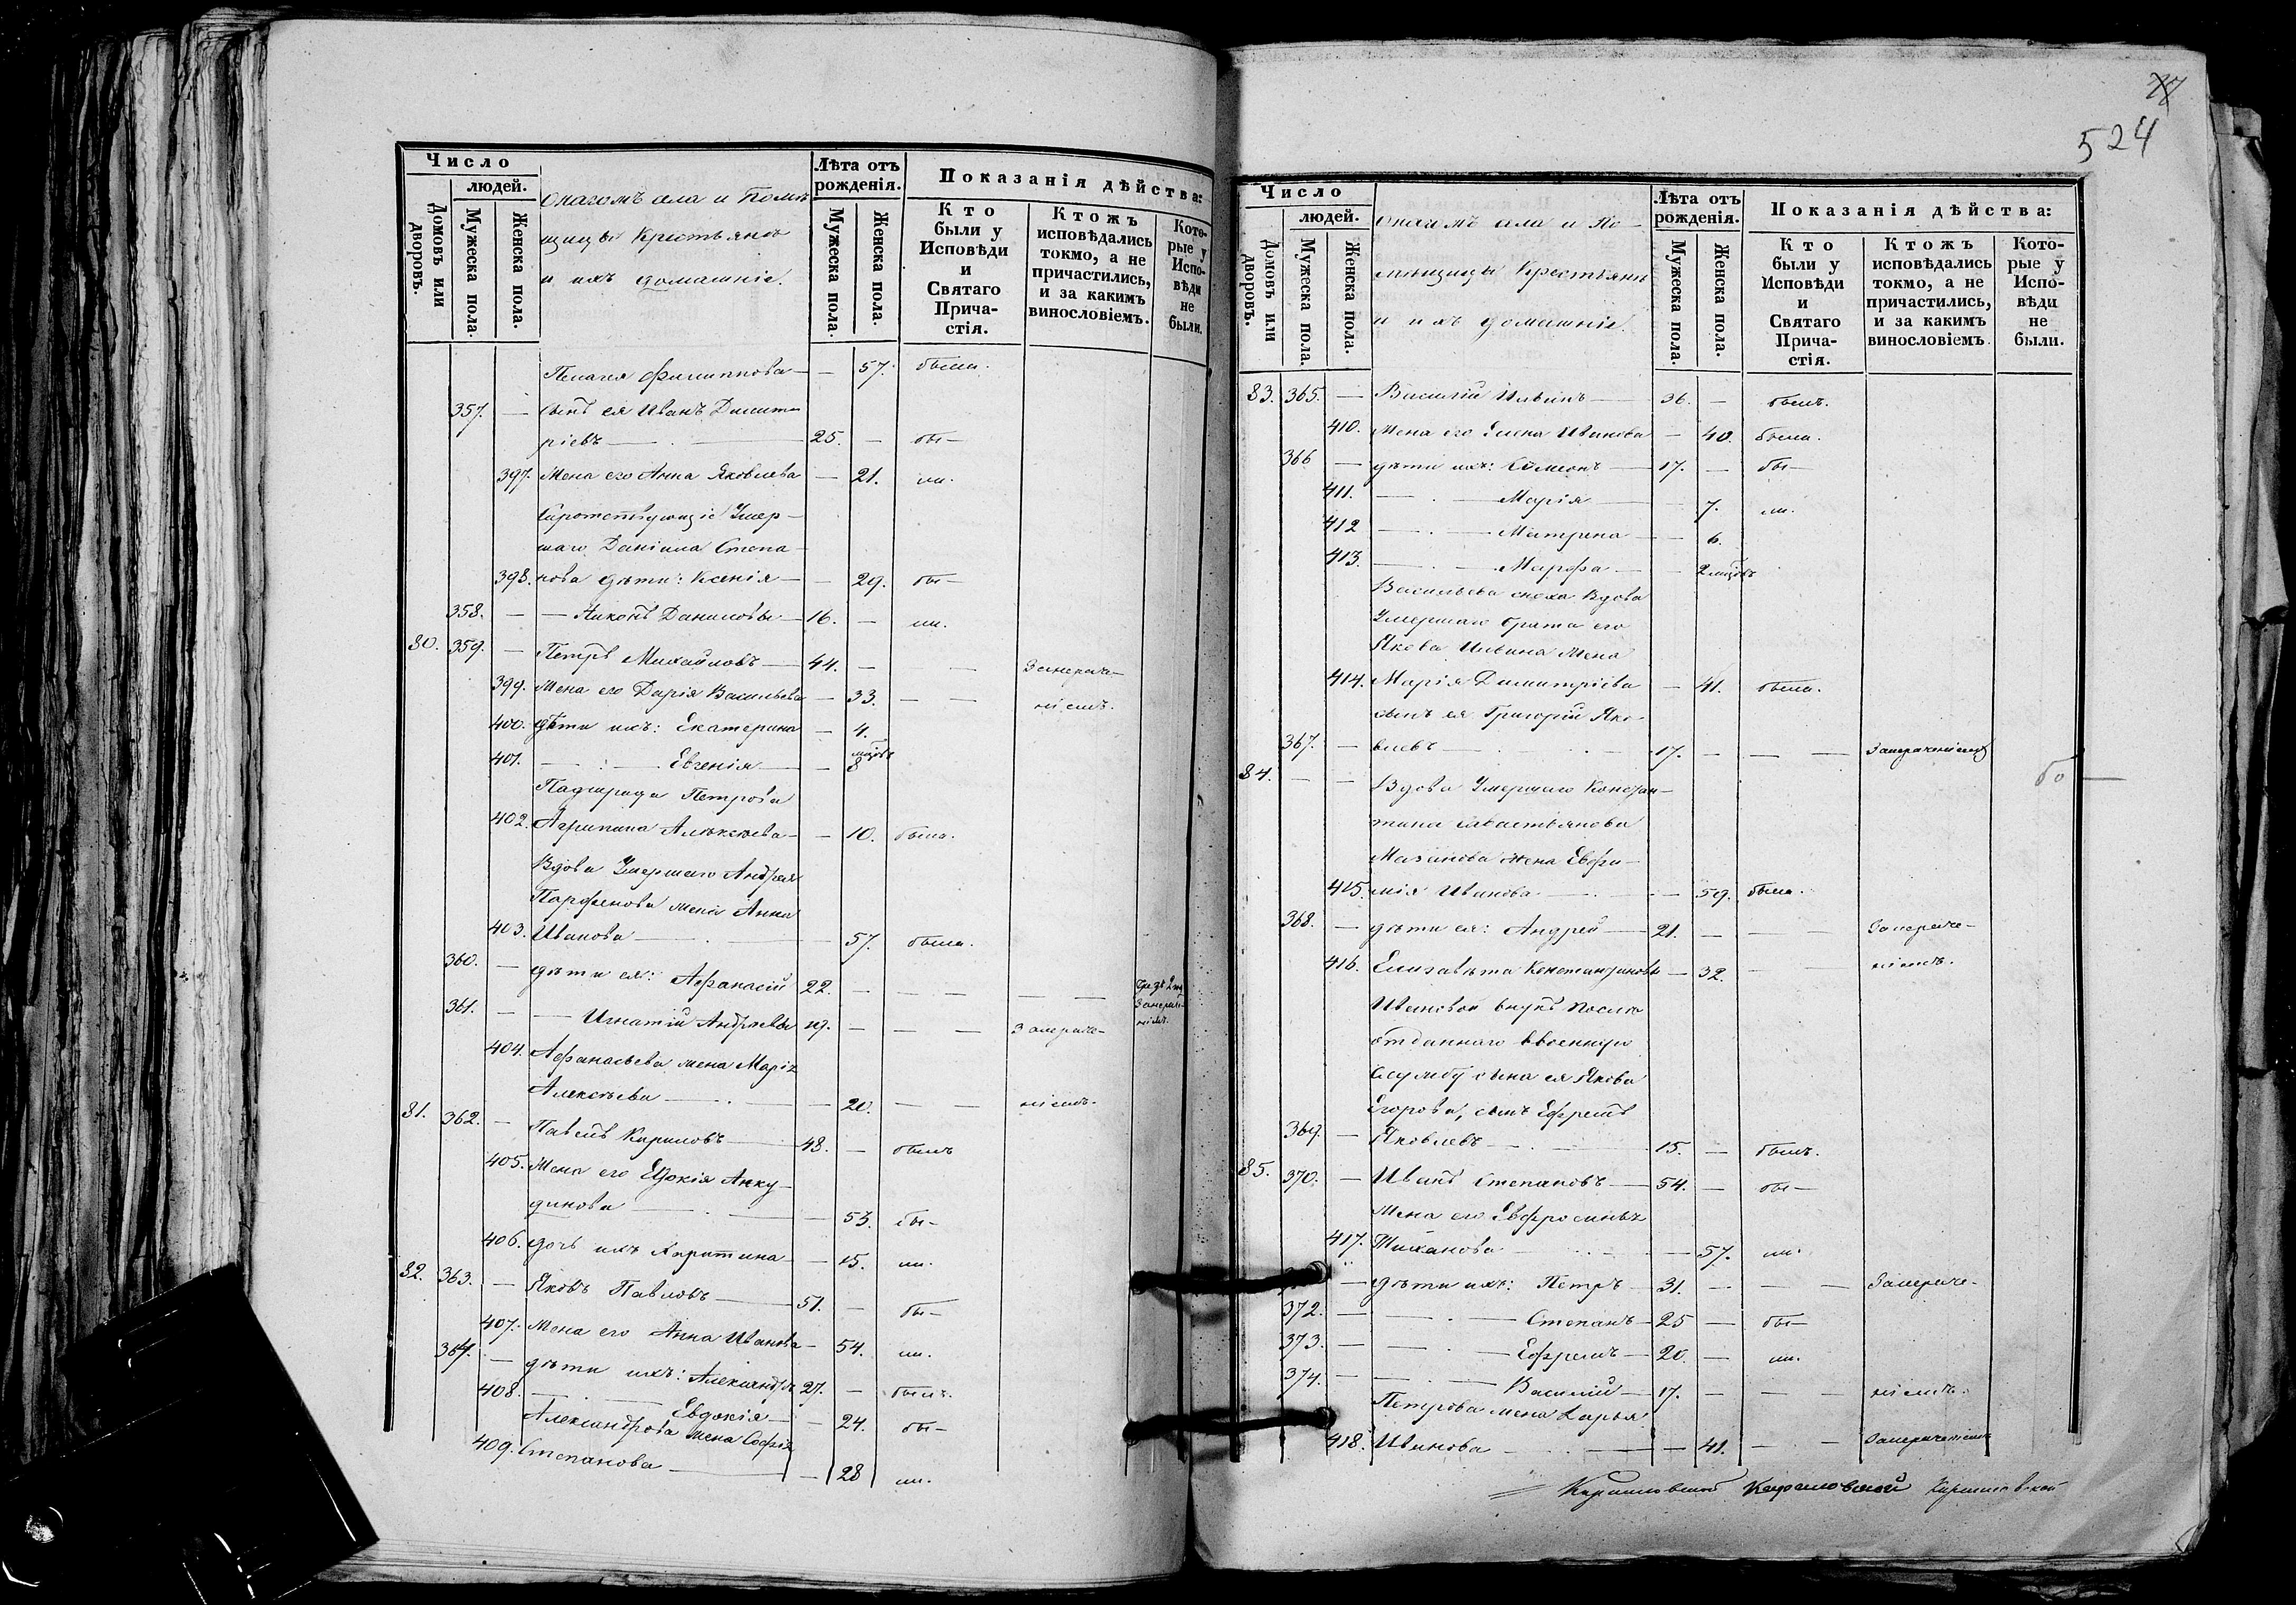 Число
людей.
Домовъ или дворовъ.
Мужеска пола.
Женска пола.
онагомъ села и Помѣ
щицы Крестьянъ
и ихъ домашніе.
Лѣта отъ рожденія.
Мужеска пола.
Женска пола.
Показанія дѣйства:
Кто были у Исповѣди и Святаго Прича-стія.
Ктожъ исповѣдались токмо, а не причастились, и за какимъ винословіемъ.
Кото-рые у Испо-вѣди не были.
Пелагея Филиппова — — 57. была.
357. — сынъ ея Иванъ Димит
ріевъ — 25. — бы—
397. Жена его Анна Яковлева — 21. ли.
Сиротствующіе Умер—
шаго Даніила Степа
398. нова дѣти: Ксенія — — 29. бы—
358. — — Даниловы — 16. — ли.
80. 359. — Петръ Михайловъ — 44. — — Занераче—
399. Жена его Дарія Васильева — 33. — — ніемъ.
400. дѣти ихъ: Екатерина — 4.
401. — Евгенія — — 8 мѣсцъ
Падчерица Петрова
402. Агрипина Алексѣева — — 10. была.
Вдова Умершаго Андрея
Парфенова жена Анна
403. Иванова — 57. была.
360. — дѣти ея: Афанасій 22. — — — — —
361. — — Игнатій Андреевы 19. — — — Занераче—
404. Афанасьева жена Марія
Алексѣева — — 20. — — ніемъ.
81. 362. — Павелъ Кириловъ — 48. — былъ
405. Жена его Евдокія Анку—
динова — — 53. бы—
406. дочь ихъ Харитина — — 15. ли.
82. 363. — Яковъ Павловъ — 51. — бы—
407. Жена его Анна Иванова — 54. ли.
364. — дѣти ихъ: Александръ 27. — былъ.
408. — Евдокія — — 24. бы—
Александрова жена Софія
409. Степанова — — 28 ли.
524
Число
людей.
Домовъ или дворовъ.
Мужеска пола.
Женска пола.
онагомъ села и По—
мѣщицы Крестьянъ
и ихъ домашніе
Лѣта отъ рожденія.
Мужеска пола.
Женска пола.
Показанія дѣйства:
Кто были у Исповѣди и Святаго Прича-стія.
Ктожъ исповѣдались токмо, а не причастились, и за какимъ винословіемъ.
Кото-рые у Испо-вѣди не были.
83. 365. — Василій Ильинъ — 36. — былъ.
410. Жена его Елена Иванова — 40. была.
366 — дѣти ихъ: Симеонъ — 17. — бы—
411. — Марія — 7. ли.
412 — Матрена — — 6.
413. — Марфа — — 2 мѣсцъ
Васильева сноха Вдова
Умершаго брата его
Якова Ильина жена
414. Марія Димитріева — 41. была.
сынъ ея Григорій Яко—
367. — влевъ — 17. — — — Занераченіемъ
84. — — Вдова Умершаго Констан—
тина Савастьянова
Мазанова жена Евфи—
415. мія Иванова — — 59. была.
368. — дѣти ея: Андрей — 21. — — — Занераче—
416. Елизавета Константиновы — 32. — — ніемъ.
Ивановой внукъ после
отданнаго ввоенную
службу сына ея Якова
Егорова, сынъ Ефремъ
369. — Яковлевъ — 15. — былъ.
85. 370. — Иванъ Степановъ — 54. — бы—
Жена его Евфросинья
417. Тиханова — — 57. ли.
— дѣти ихъ: Петръ — 31. — — — Занераче—
372. — — Степанъ — 25 — бы—
373. — — Ефремъ — 20. — ли.
374. — — Василій — 17. — — — ніемъ.
Петрова жена Дарья
418. Иванова — — 41. — — Занераченіемъ
Кириловской